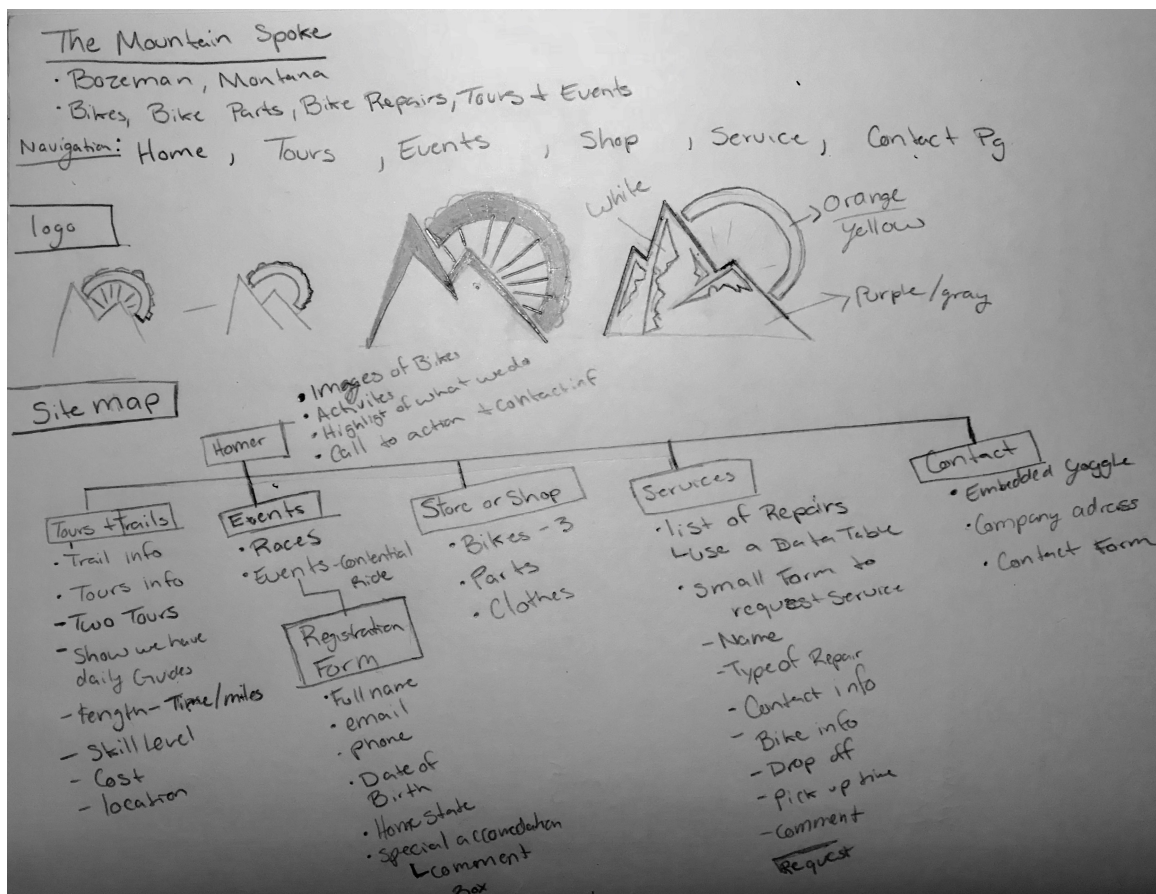 The Mountain Spoke
· Bozeman, Montana
· Bikes, Bike Parts, Bike Repairs, Tours + Events
Navigation: Home, Tours, Events, Shop, Service, Contact Pg
logo
White
Orange
Yellow
Purple/gray
Site map
• Images of Bikes
• Activites
• Highligt of what we do
• Call to action + contact inf
Home
Tours + Trails
• Trail info
• Tours info
- Two Tours
- Show we have
daily Guides
- Length - Time/miles
- Skill Level
- Cost
- location
Events
• Races
• Events -
Ride
Registration
Form
• Full name
• email
• phone
• Date of
Birth
• Home State
• Special accomedation
comment
Box
Store or Shop
• Bikes - 3
• Parts
• Clothes
Services
• list of Repairs
use a Data Table
• Small Form to
request Service
- Name
- Type of Repair
- Contact info
- Bike info
- Drop off
- Pick up time
- Comment
Request
Contact
• Embedded
• Company adress
• Contact Form